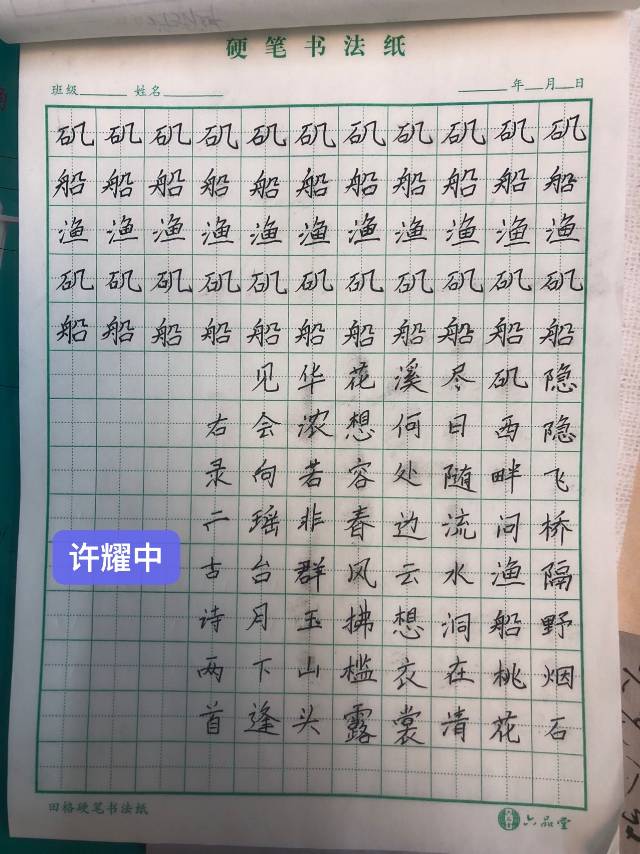 硬笔书法纸
班级 姓名 年 月 日
矶矶矶矶矶矶矶矶矶矶矶
船船船船船船船船船船船
渔渔渔渔渔渔渔渔渔渔渔
矶矶矶矶矶矶矶矶矶矶矶
船船船船船船船船船船船
隐隐飞桥隔野烟石
矶西畔问渔船桃花
尽日随流水洞在清
溪何处边云想衣裳
花想容春风拂槛露
华浓若非群玉山头
见会向瑶台月下逢
右录二古诗两首
许耀中
田格硬笔书法纸
六品堂